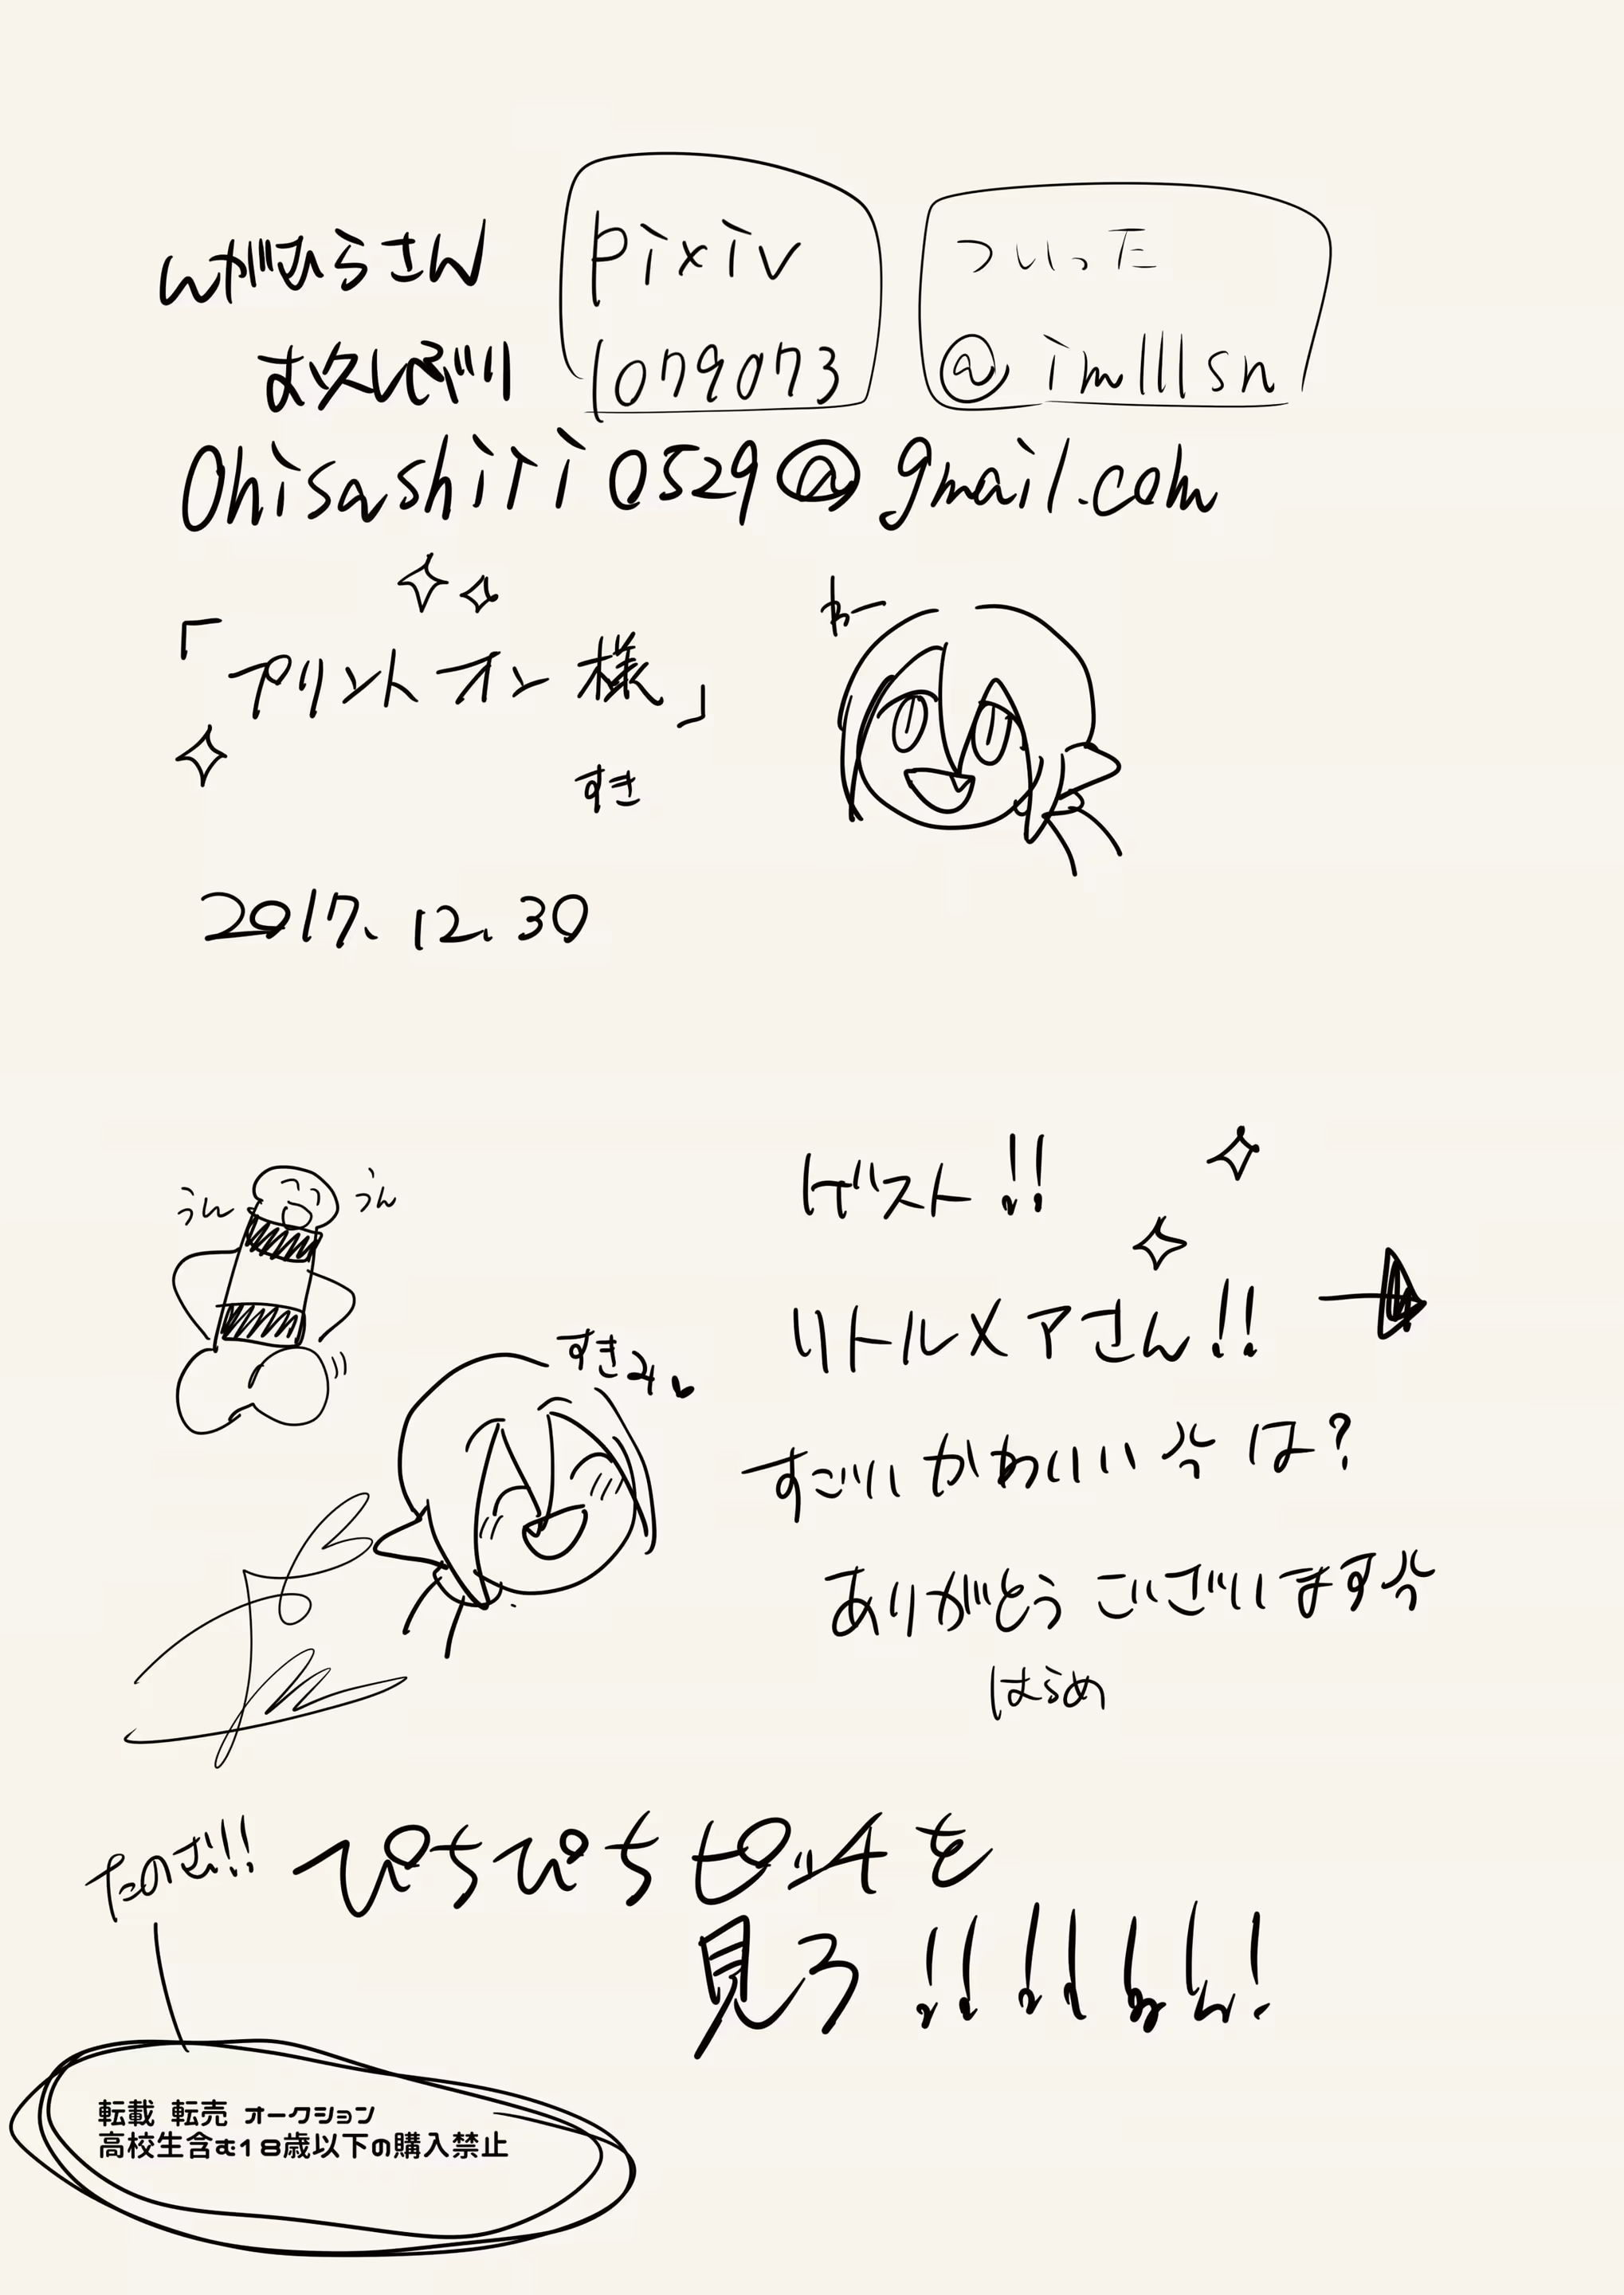 んがひらさん
お久しぶり
pixiv
1079073
ついった
@imlllsn
Ohisashiiii0529@gmail.com
「プリントオン様」
すき
わー
2017.12.30
うん
うん
ゲスト!!
リトルメアさん!!
すごいかわいい は?
ありがとうございます
はらめ
すき
たのざ!!
ぴちぴちピッチを
見ろ!!!!!!!
転載 転売 オークション
高校生含む18歳以下の購入禁止